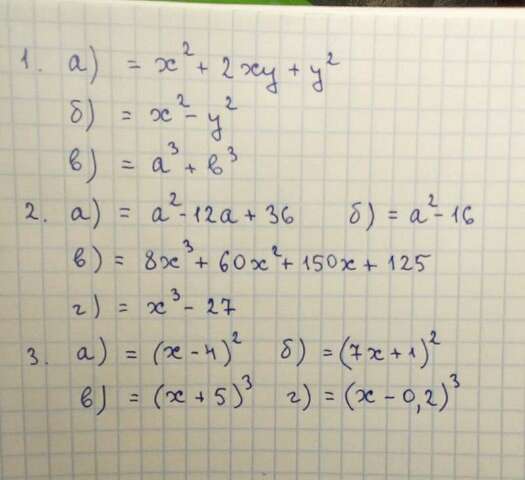 1. а) = x² + 2xy + y²
б) = x² - y²
в) = a³ + в³
2. а) = a² - 12a + 36 б) = a² - 16
в) = 8x³ + 60x² + 150x + 125
г) = x³ - 27
3. а) = (x - 4)² б) = (7x + 1)²
в) = (x + 5)³ г) = (x - 0,2)³